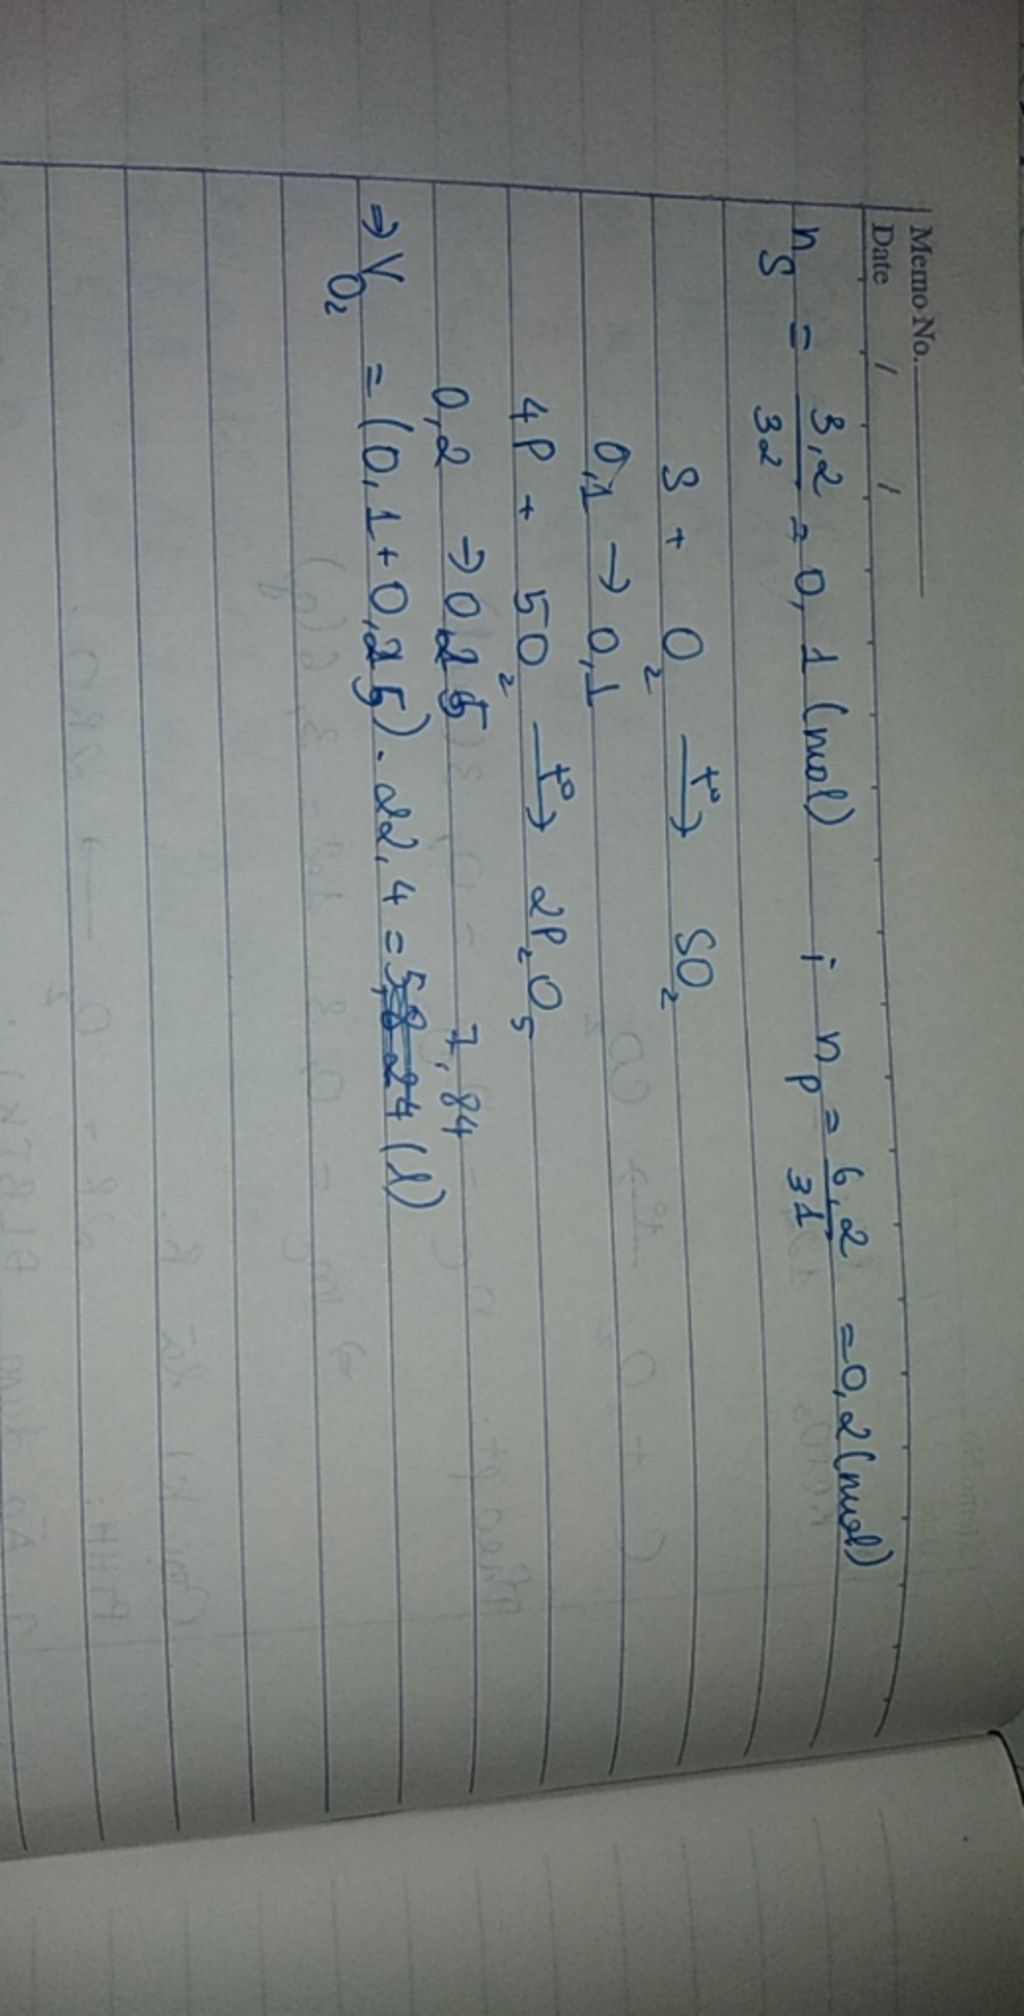 Memo No.
Date / /
n_S = 3,2/32 = 0,1 (mol) ; n_P = 6,2/31 = 0,2 (mol)
S + O₂ —t°→ SO₂
0,1 → 0,1
4P + 5O₂ —t°→ 2P₂O₅
0,2 → 0,25
7,84
⇒ V_O₂ = (0,1 + 0,25) . 22,4 = 5,824 (l)